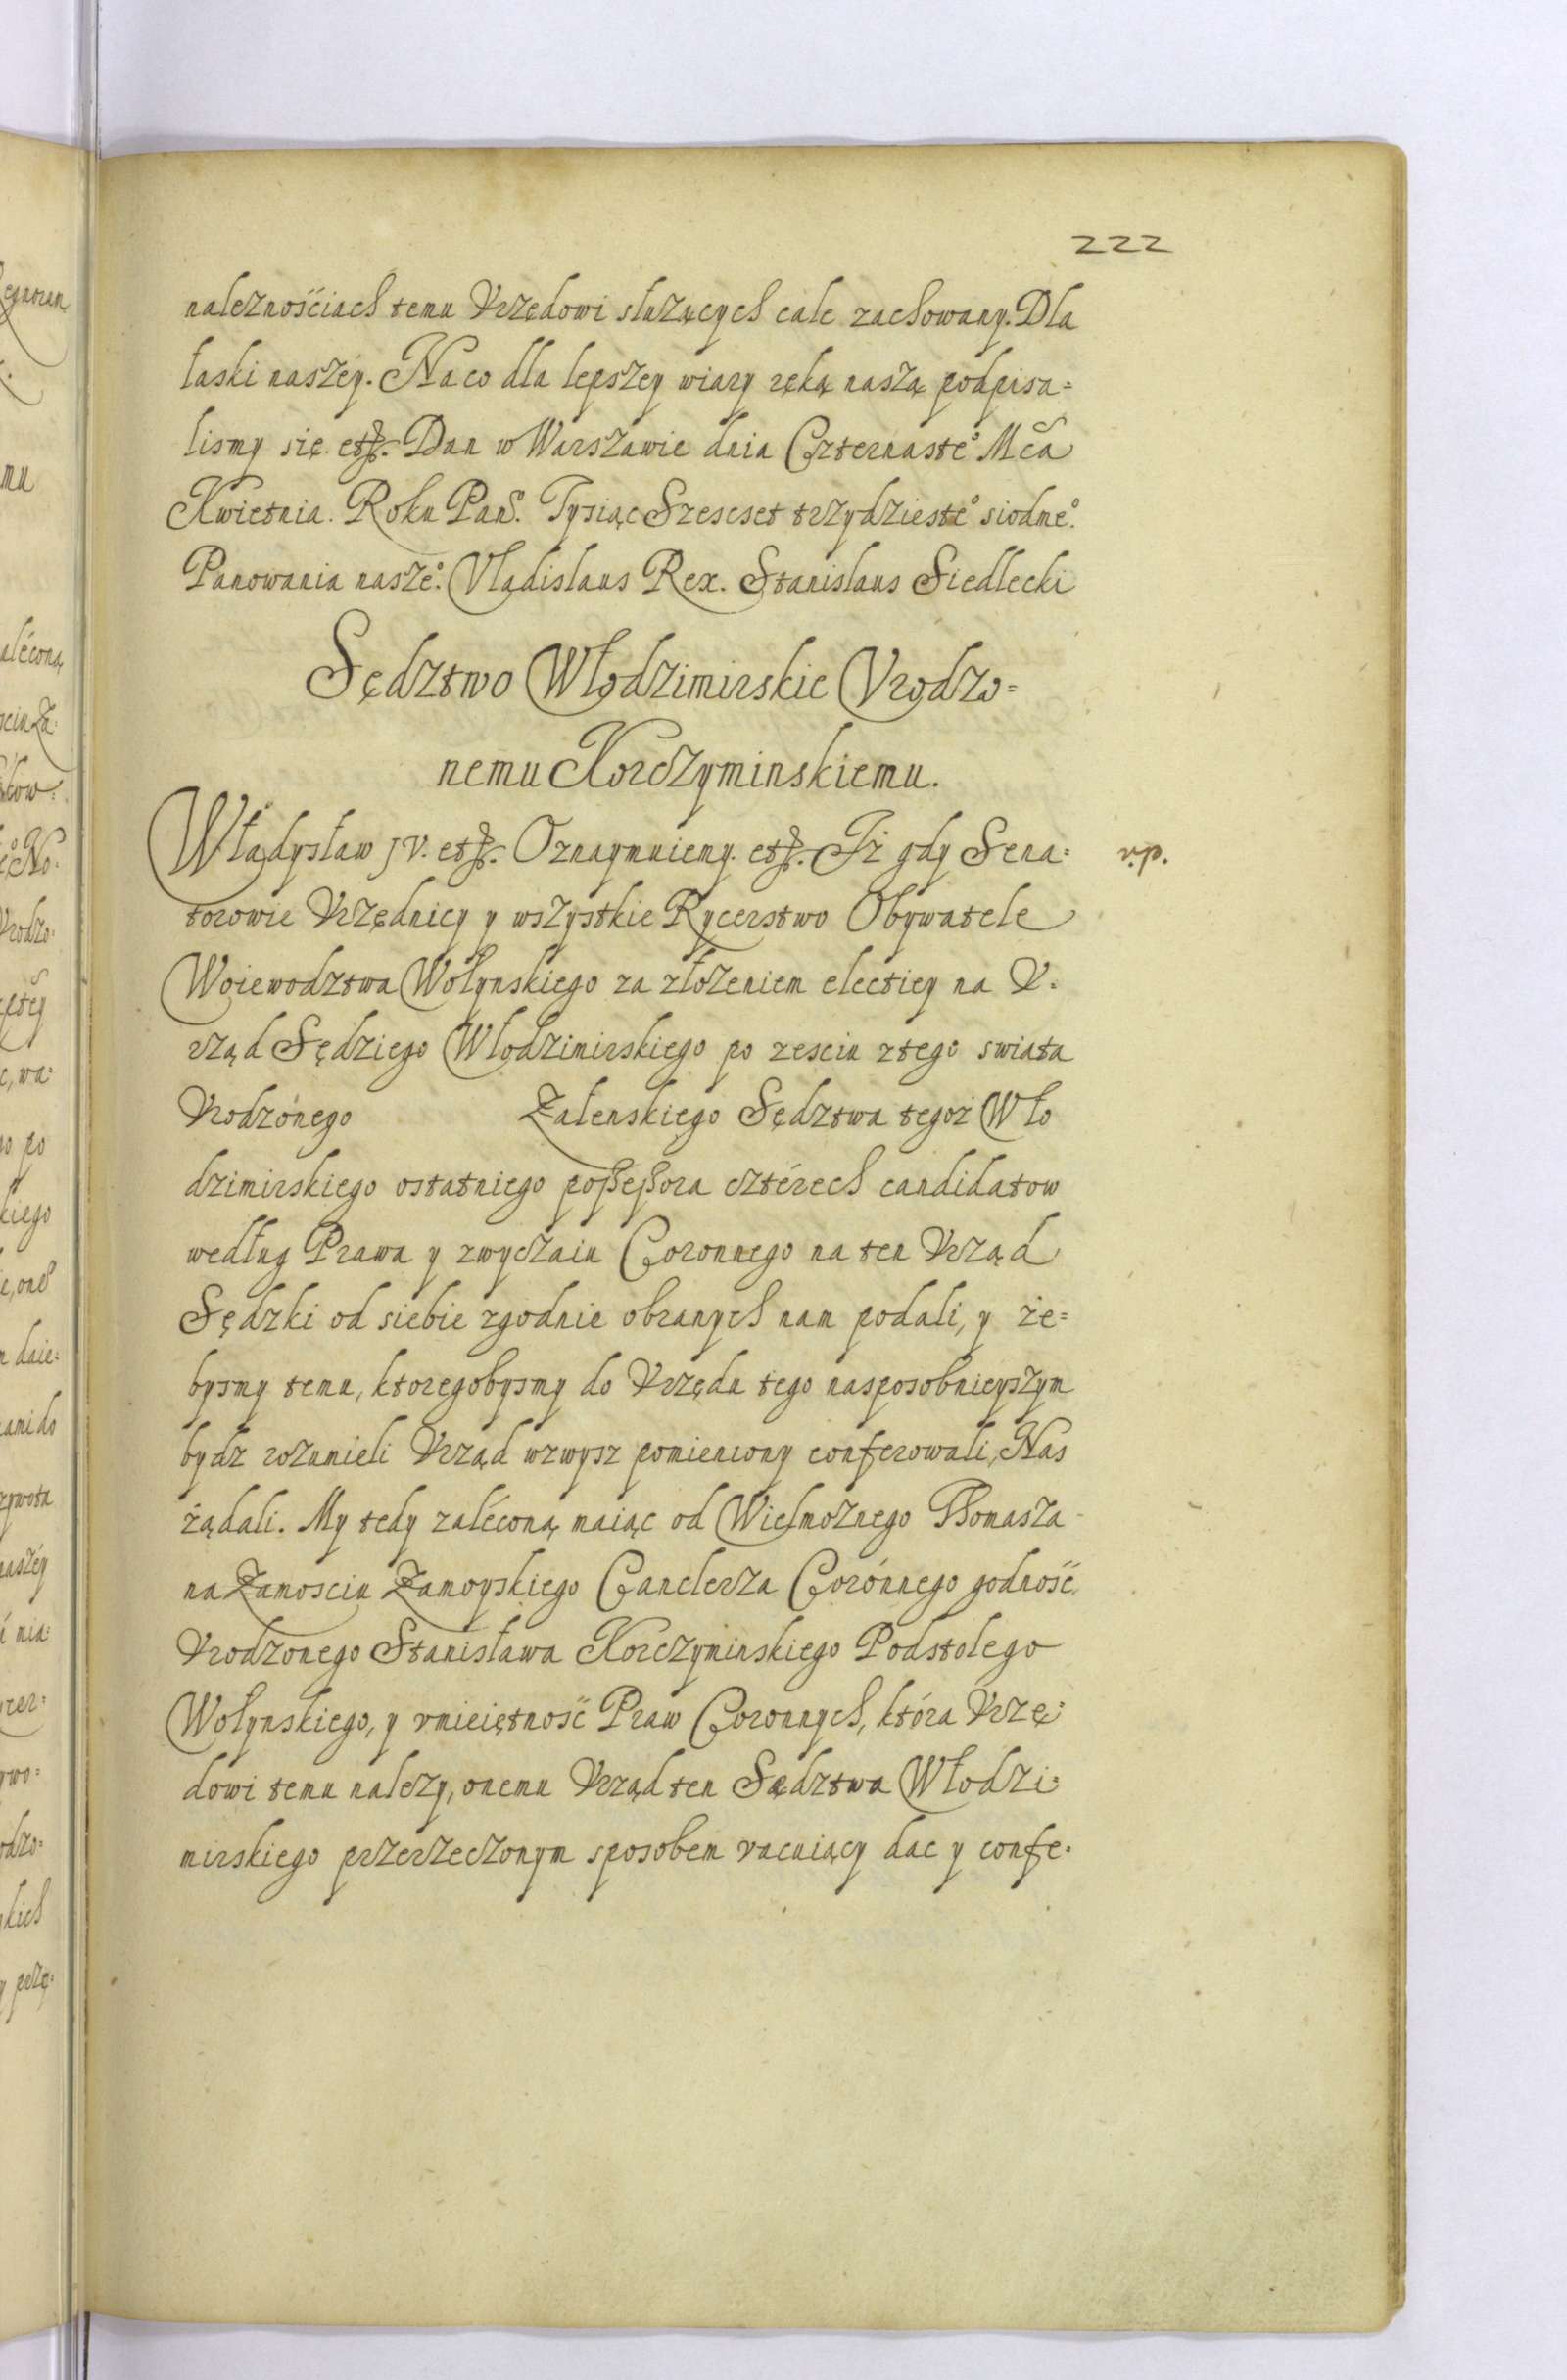 222
należnośćiach temu Vrzędowi służących cale zachowany. Dla
łaski naszéy. Na co dla lepszey wiary ręką naszą podpisa=
lismy się. etc. Dan w Warszawie dnia Czternasteº Mca
Kwietnia. Roku Pańs. Tysiąc Szescset trzydziesteº siodmeº.
Panowania naszeº. Vladislaus Rex. Stanislaus Siedlecki
Sędztwo Włodzimirskie Vrodzo=
nemu Korczyminskiemu.
Władysław JV. etc. Oznaymuiemy. etc. Iż gdy Sena= v.p.
torowie Vrzędnicy y wszystkie Rycerstwo Obywatele
Woiewodztwa Wołynskiego za złożeniem electiey na V.
rząd Sędziego Włodzimirskiego po zesciu z tego swiata
Vrodzónego Załenskiego Sędztwa tegoż Wło
dzimirskiego ostatniego poßeßora cztérech candidatow
według Prawa y zwyczaiu Coronnego na ten Vrząd
Sędzki od siebie zgodnie obranych nam podali, y że=
bysmy temu, ktoregobysmy do Vrzędu tego nasposobnieyszym
bydz rozumieli Vrząd wzwysz pomieniony conferowali, Nas
żądali. My tedy zalécona maiąc od Wielmożnego Thomasza
na Zamosciu Zamoyskiego Canclerza Corónnego godność
Vrodzonego Stanisława Korczyminskiego Podstolego
Wołynskiego, y vmieiętność Praw Coronnych, która Vrzę=
dowi temu należy, onemu Vrząd ten Sędztwa Włodzi=
mirskiego przerzeczonym sposobem vacuiący dac y confe=